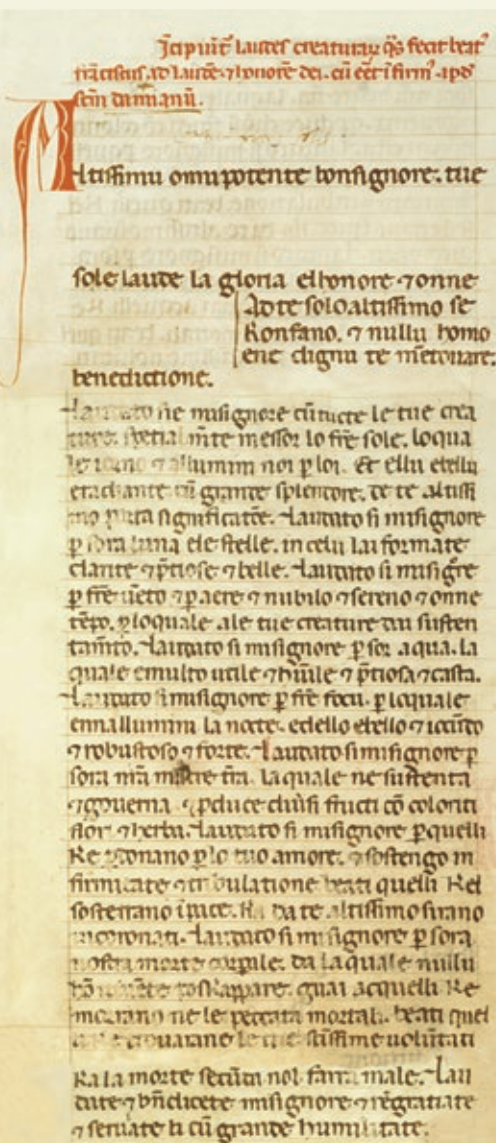 Incipiūt laudes creaturaꝝ qͣs fecit beatꝰ
frāciscus ad laudē ⁊ honorē dei. cū eēt ī firmꝰ apd̄
scm̄ damianū.
Altissimu omnipotente bonsignore. tue
sole laude la gloria elhonore ⁊ onne
Ad te solo altissimo se
Konfano. ⁊ nullu homo
ene dignu te mētovare.
benedictione.
Laudato sie misignore cū tucte le tue crea
ture spetialmēte messor lo frē sole. loqua
le iorno ⁊ allumini noi ꝑ loi. Et ellu ebellu
eradiante cū grande splendore. de te altissi
mo porta significatōe. Laudato si misignore
ꝑ sora luna ele stelle. in celu lai formate
clarite ⁊ p̄tiose ⁊ belle. Laudato si misigr̄e
ꝑ frē uēto ⁊ ꝑ aere ⁊ nubilo ⁊ sereno ⁊ onne
tēpo. ꝑ loquale ale tue creature dai susten
tamēto. Laudato si misignore ꝑ sor aqua. la
quale emulto utile ⁊ hūile ⁊ p̄tiosa ⁊ casta.
Laudato si misignore ꝑ frē focu. ꝑ loquale
ennallumini la nocte. edello ebello ⁊ iocūdo
⁊ robustoso ⁊ forte. Laudato si misignore ꝑ
sora nr̄a matre tr̄a. laquale ne sustenta
⁊ gouerna. ⁊ ꝓduce diuīsi fructi cō coloriti
flori ⁊ herba. Laudato si misignore ꝑ quelli
Ke ꝑdonano ꝑ lo tuo amore. ⁊ sostengo in
firmitate ⁊ tribulatione beati quelli Kel
sosterrano īpace. Ka da te altissimo sirano
incoronati. Laudato si misignore ꝑ sora
nostra morte corꝑale. da laquale nullu
hō uiuēte poskappare. guai acquelli Ke
morrano ne le peccata mortali. beati quel
li ke trouarane le tue s̄tissime uoluntati
Ka la morte secūda nol farra male. Lau
date ⁊ bn̄dicete misignore ⁊ rēgratiate
⁊ seruiate li cū grande humilitate.